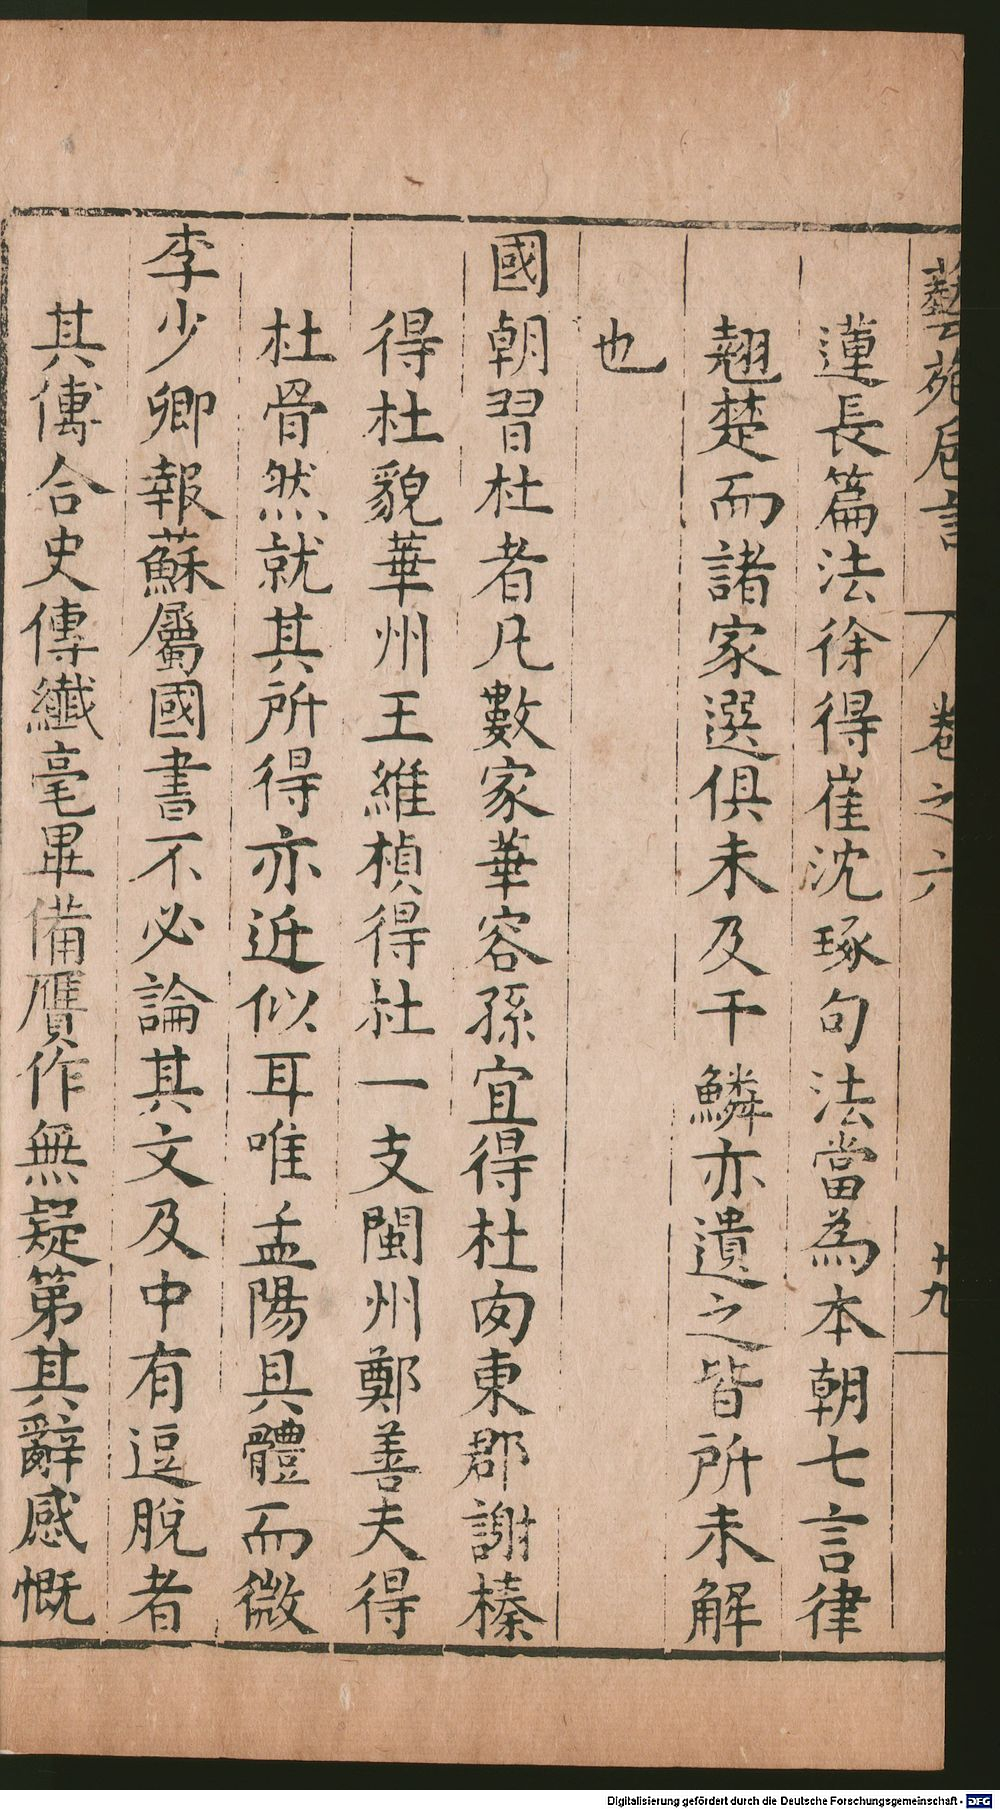 藝苑卮言
卷之六
十九
蓮長篇法徐得崔沈琢句法當為本朝七言律
翹楚而諸家選俱未及于鱗亦遺之皆所未解
也
國朝習杜者凡數家華容孫宜得杜肉東郡謝榛
得杜貌華州王維楨得杜一支閩州鄭善夫得
杜骨然就其所得亦近似耳唯孟陽具體而微
李少卿報蘇屬國書不必論其文及中有逗脫者
其傅合史傳纖毫畢備贋作無疑第其辭感慨
Digitalisierung gefördert durch die Deutsche Forschungsgemeinschaft - DFG